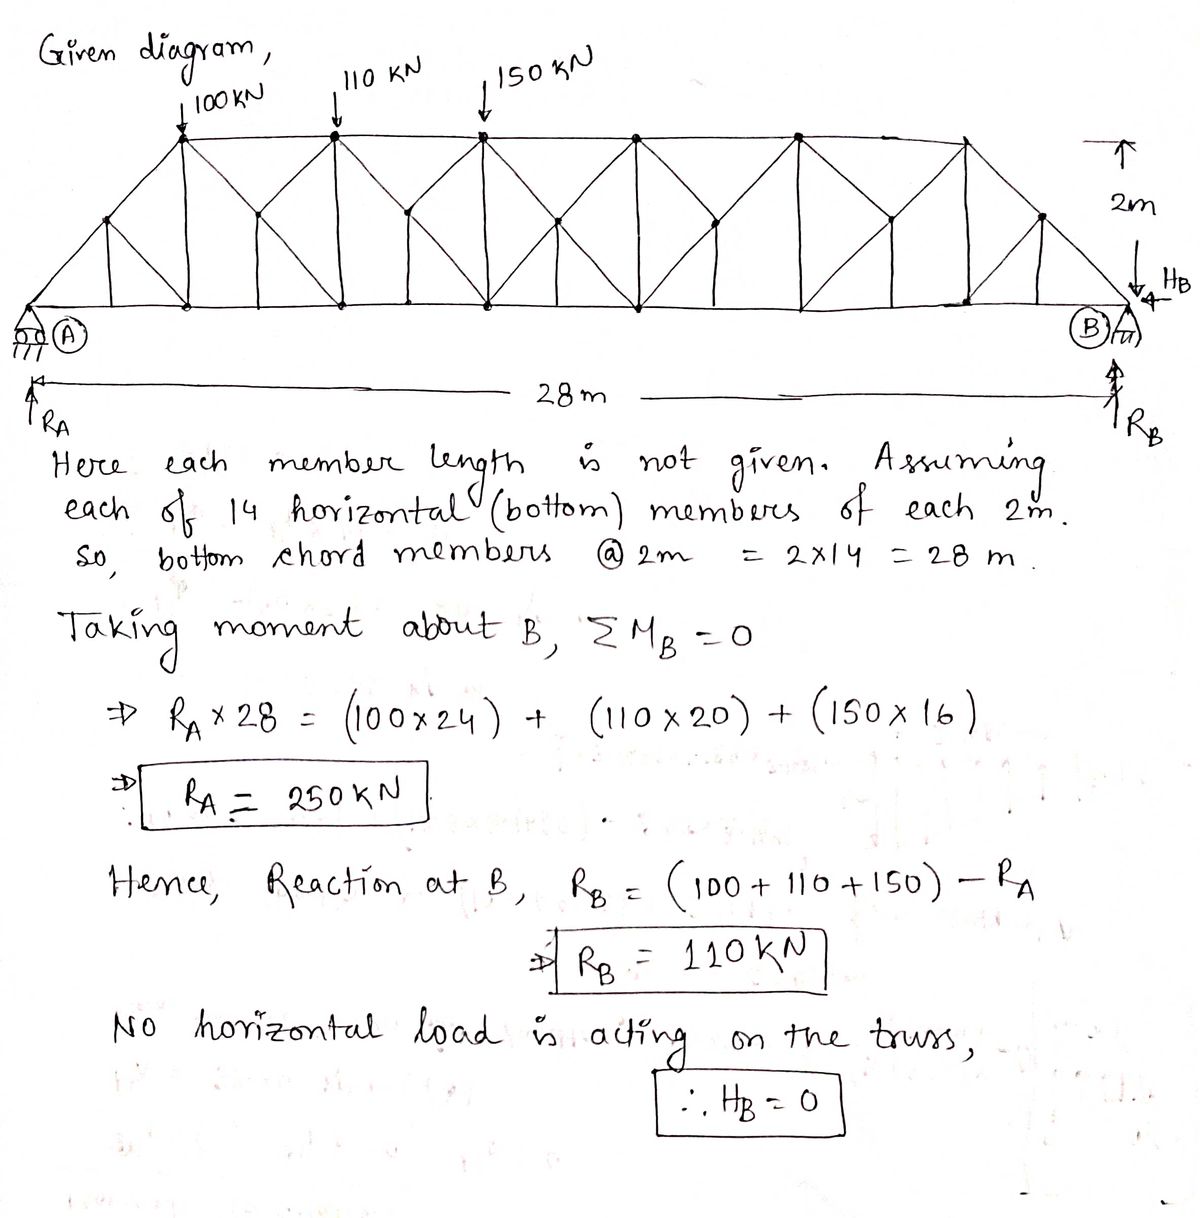 Given diagram,
100 KN
110 KN
150 KN
2m
HB
A
B
28 m
RA
RB
Here each member length is not given. Assuming
each of 14 horizontal (bottom) members of each 2m.
So, bottom chord members @ 2m = 2×14 = 28 m.
Taking moment about B, ΣMB = 0
⇒ RA × 28 = (100×24) + (110×20) + (150×16)
⇒ RA = 250 KN
Hence, Reaction at B, RB = (100 + 110 + 150) - RA
⇒ RB = 110 KN
No horizontal load is acting on the truss,
∴ HB = 0